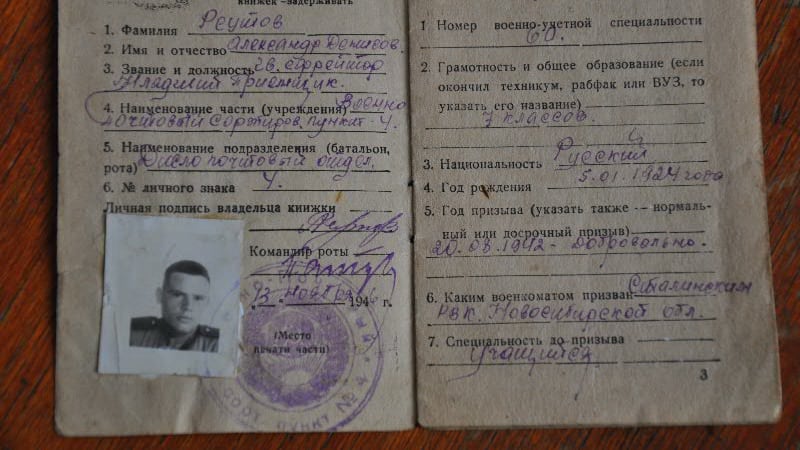 книжек — задерживать
1. Фамилия Реутов
2. Имя и отчество Александр Денисов.
3. Звание и должность гв. ефрейтор
Младший приемщик.
4. Наименование части (учреждения) Военно
почтовый сортиров. пункт-4.
5. Наименование подразделения (батальон,
рота) почтовый отдел.
6. № личного знака 4.
Личная подпись владельца книжки
Реутов
Командир роты
13 ноября 194 г.
(Место
печати части)
1 Номер военно-учетной специальности
60.
2. Грамотность и общее образование (если
окончил техникум, рабфак или ВУЗ, то
указать его название)
7 классов.
3. Национальность Русский
4. Год рождения 5.01.1924 года
5. Год призыва (указать также — нормаль-
ный или досрочный призыв)
20.08.1942 - добровольно.
6. Каким военкоматом призван Сталинским
РВК. Новосибирской обл.
7. Специальность до призыва
учащийся
3